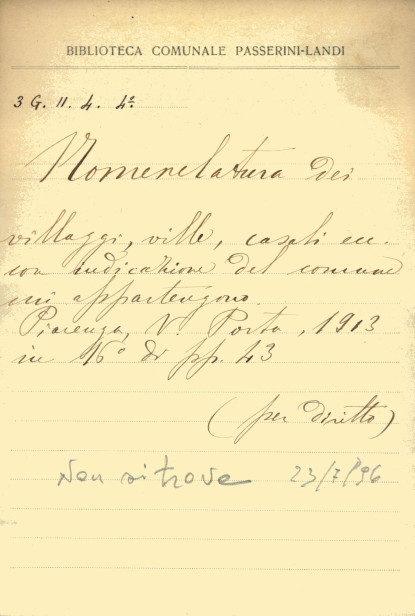 BIBLIOTECA COMUNALE PASSERINI-LANDI
3 G. II. 4. 4º
Nomenclatura dei
villaggi, ville, casali ecc.
con indicazione del comune
cui appartengono.
Piacenza, V. Porta, 1913
in 16º di pp. 43
(per diritto)
Non si trova 23/7/96